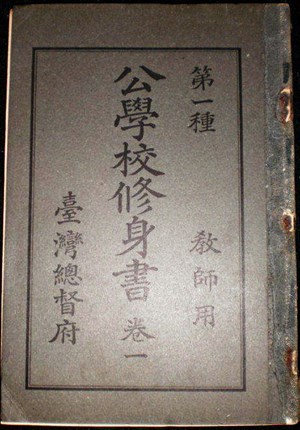 第一種 教師用
公學校修身書 卷一
臺灣總督府